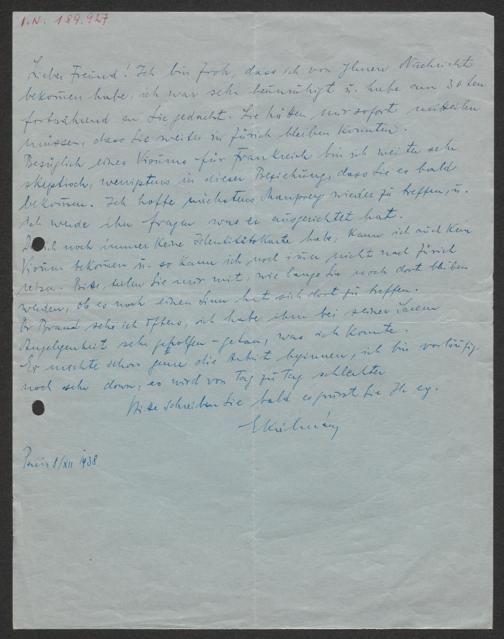 I.N. 189.927
Lieber Freund! Ich bin froh, dass ich von Ihnen Nachricht
bekommen habe, ich war sehr beunruhigt u. habe am 30ten
fortwährend an Sie gedacht. Sie hätten mir sofort mitteilen
müssen, dass Sie weiter in Zürich bleiben konnten.
Bezüglich eines Visums für Frankreich bin ich weiter sehr
skeptisch, wenigstens in dieser Beziehung, dass Sie es bald
bekommen. Ich hoffe nächstens wieder zu treffen, u.
ich werde ihn fragen was er ausgerichtet hat.
noch immer keine Identitätskarte habe, kann ich auch kein
Visum bekommen u. so kann ich noch immer nicht nach Zürich
reisen. Bitte, teilen Sie mir mit, wie lange Sie noch dort bleiben
werden, ob es noch einen Sinn hat sich dort zu treffen.
Dr Brand sehe ich öfters, ich habe ihm bei seiner
Angelegenheit sehr geholfen – getan, was ich konnte.
Er möchte schon gerne die Arbeit beginnen, ich bin vorläufig
noch sehr down, es wird von Tag zu Tag schlechter
Bitte schreiben Sie bald es grüsst Sie Ihr erg.
EKálmán
Paris 1/XII 1938